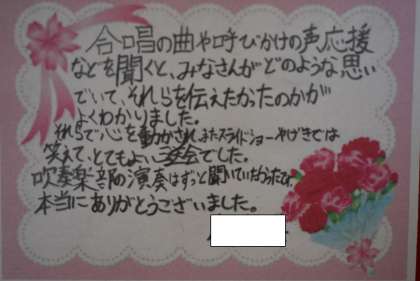 合唱の曲や呼びかけの声応援
などを聞くと、みなさんがどのような思い
でいて、それらを伝えたかったのかが
よくわかりました。
それらで心を動かされ、またスライドショーやげきでは
笑えて、とてもよい会でした。
吹奏楽部の演奏はずっと聞いていたかったです。
本当にありがとうございました。